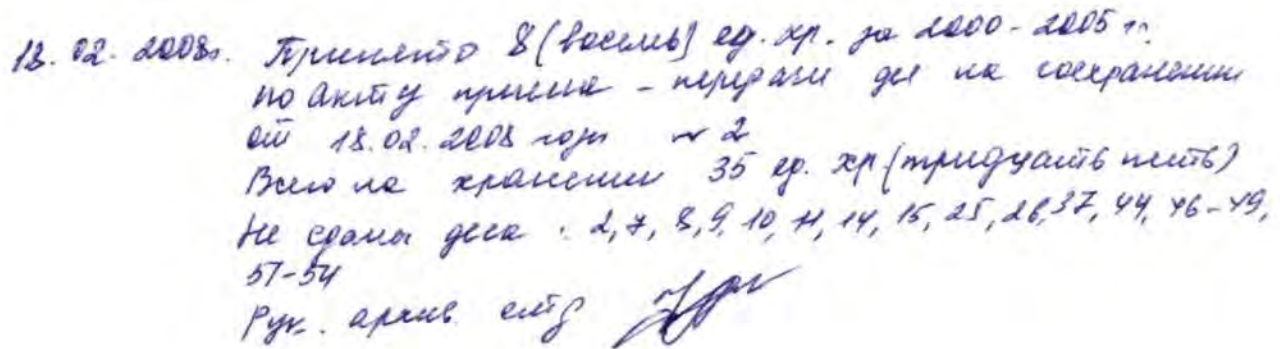 18.02.2008г. Принято 8 (восемь) ед. хр. за 2000-2005 гг.
по Акту приема - передачи дел на сохранение
от 18.02.2008 года № 2
Всего на хранении 35 ед. хр (тридцать пять)
Не сданы дела: 2, 7, 8, 9, 10, 11, 14, 15, 25, 26, 37, 44, 46-49,
51-54
Рук. архив.